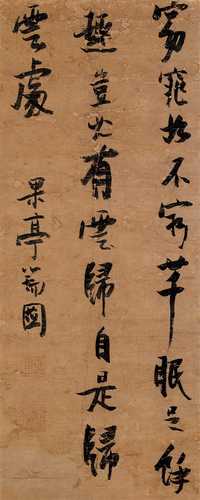 窈窕故不窮芊眠足餘
趣豈必有雲歸自是歸
雲處
果亭